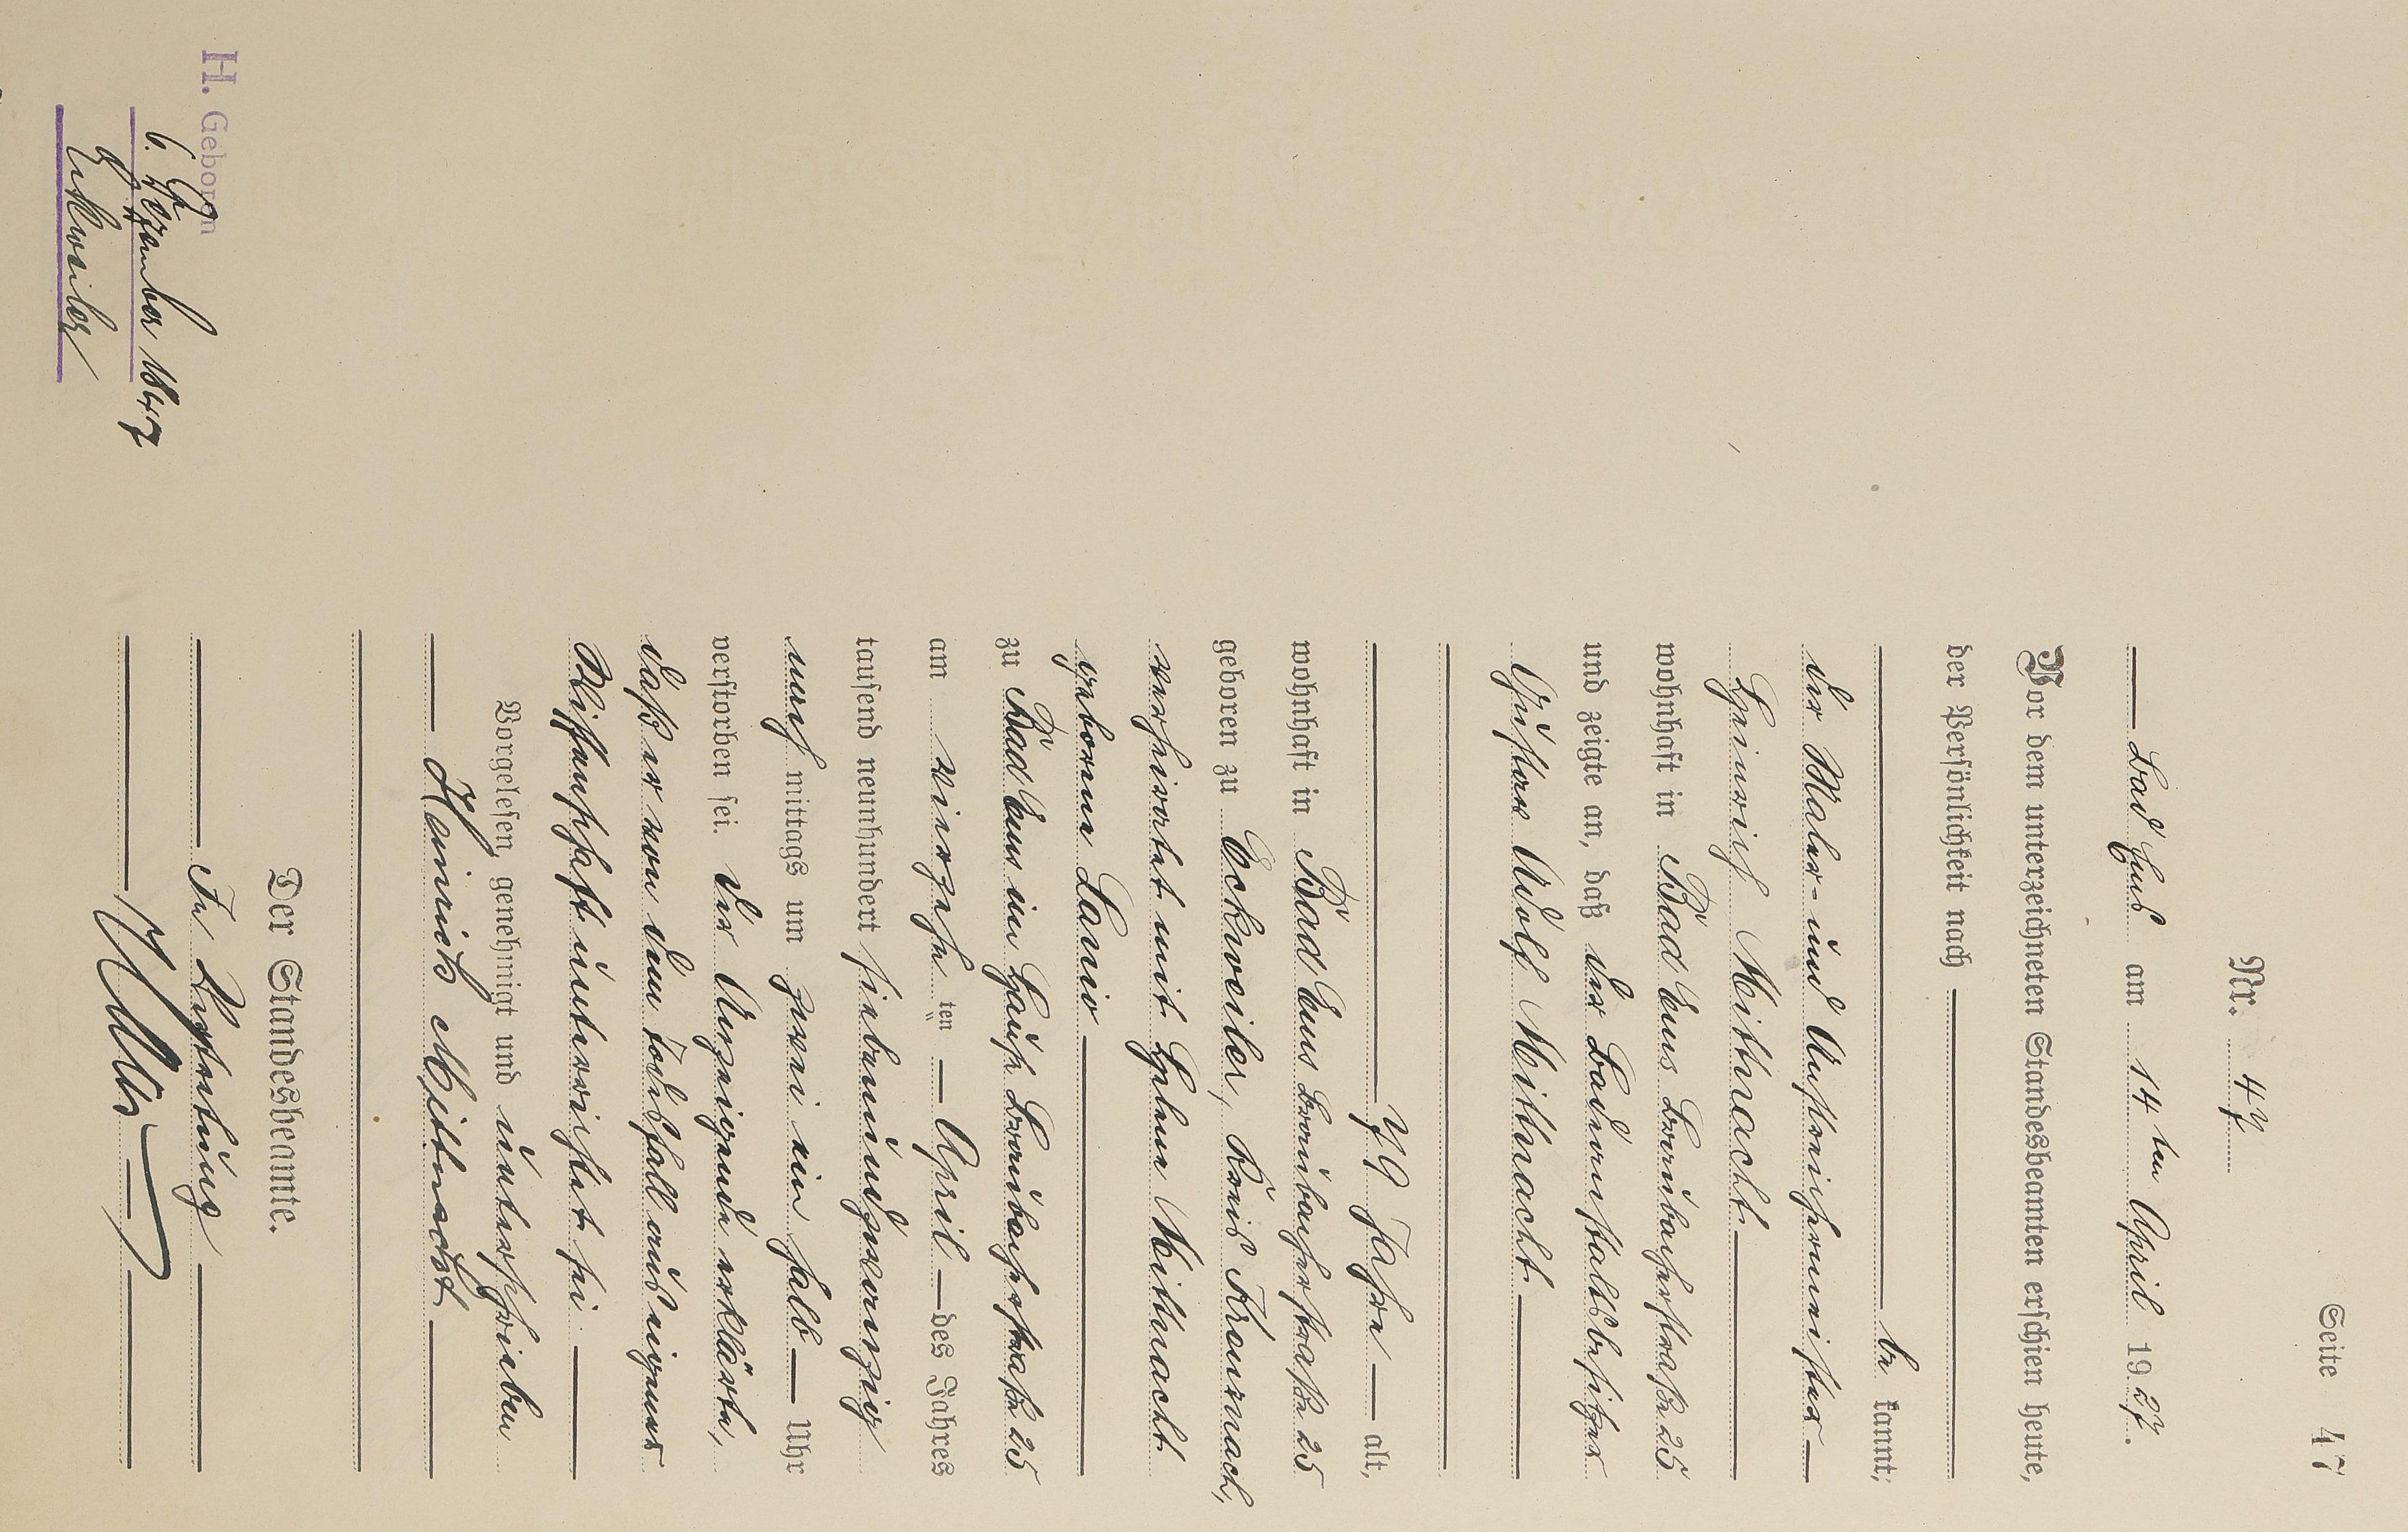 Seite 47
Nr. 47
Bad Ems am 14ten April 1927.
Vor dem unterzeichneten Standesbeamten erschien heute,
der Persönlichkeit nach
be kannt,
der Maler- und Anstreichermeister
Heinrich Mittnacht
wohnhaft in Bad Ems Braubacherstraße 25
und zeigte an, daß der Badeanstaltsbesitzer
Gustav Adolf Mittnacht
79 Jahre alt,
wohnhaft in Bad Ems Braubacherstraße 25
geboren zu Eckweiler, Kreis Kreuznach,
verheiratet mit Mittnacht
geborene
zu Bad Ems im Hause Braubacherstraße 25
am vierzehn ten April des Jahres
tausend neunhundert siebenundzwanzig
nach mittags um zwei ein halb Uhr
verstorben sei. Der Anzeigende erklärte,
daß er von dem Todesfall aus eigener
Wissenschaft unterrichtet sei.
Vorgelesen, genehmigt und unterschrieben
Heinrich Mittnacht
Der Standesbeamte.
In Vertretung
H. Geboren
6. Dezember 1847
Eckweiler